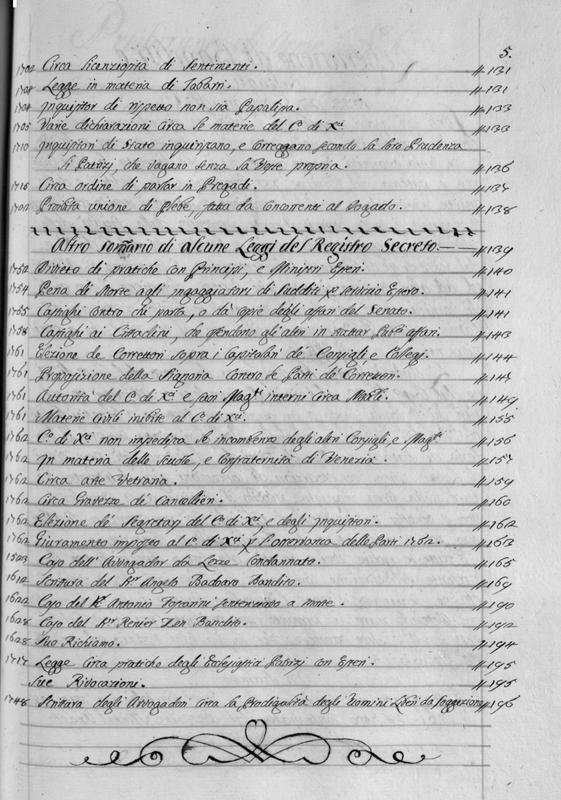 5.
1702 Circa licenziosità di Sentimenti. # 131
1704 Legge in materia di Tabarri. # 131
1704 Inquisitor di rispetto non sia Papalista. # 133
1705 Varie dichiarazioni circa le materie del C.º di X.ci # 133
1710 Inquisitori di Stato inquiriscano, e correggano secondo la loro Prudenza
li Patrizj, che vagano senza la Veste propria. # 136
1715 Circa ordine di parlar in Pregadi. # 137
Proibita unione di Plebe, fatta da Concorrenti al Vogado. # 138
Altro somario di alcune Leggi del Registro Secreto. # 139
1752 Divieto di pratiche con Principi, e Ministri Esteri. # 140
1754 Pena di Morte agli ingaggiatori di Sudditi p servizio Estero. # 141
1755 Castighi contro chi parla, o dà copie degli affari del Senato. # 141
1758 Castighi ai Cittadini, che offendono gli altri in trattar Pub.ci affari. # 143
1761 Elezione de Correttori sopra i Capitolari de Consigli e Collegj. # 144
1761 Proposizione della Signoria Contro le Parti de Correttori. # 147
1761 Autorità del C.º di X.ci e suoi Mag.ti interni circa # 149
1761 Materie Civili inibite al C.º di X.ci. # 155
1762 C.º di X.ci non impedisca le incombenze degli altri Consigli, e Mag.ti # 156
1762 In materia delle Scuole, e Confraternità di Venezia. # 157
1762 Circa arte Vetraria. # 159
1762 Circa Gravezze de' Cancellieri. # 160
1762 Elezione de' Segretarj del C.º di X.ci, e degli Inquisitori. # 162
1762 Giuramento imposto al C.º di X.ci p l'osservanza delle Parti 1762. # 163
1523 Caso dell'Avvogador da Lezze Condannato. # 165
1612 Scrittura del K.r Angelo Badoaro Bandito. # 169
1622 Caso del K.r Antonio Foscarini sentenziato a morte. # 190
1628 Caso del K.r Renier Zen Bandito. # 192
1628 Suo Richiamo. # 194
1717 Legge circa pratiche degli Ecclesiastici Patrizj con Esteri. # 195
Sue Rivocazioni. # 195
1748 Scrittura degli Avogadori circa la Prodigalità degli Uomini Liberi da soggezione # 196